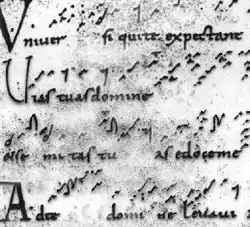 Vniuer si qui te expectant
Uias tuas domine
osse mi tas tu as edoceme
Ad te domi ne leuaui